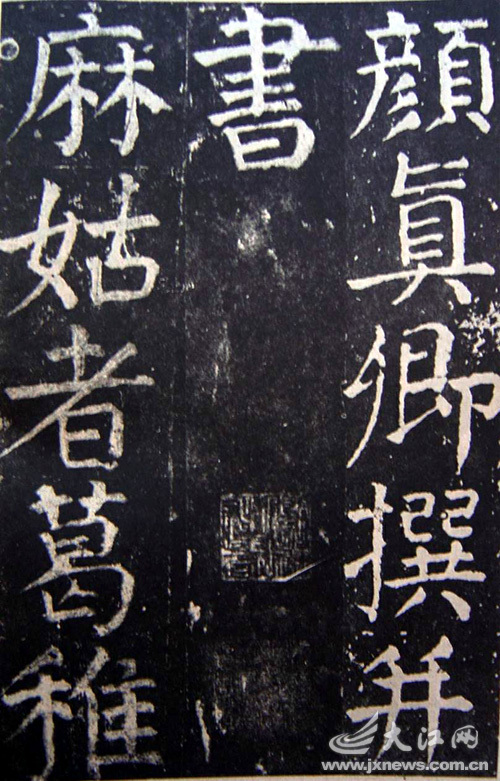 顔真卿撰并
書
麻姑者葛稚
大江网
www.jxnews.com.cn